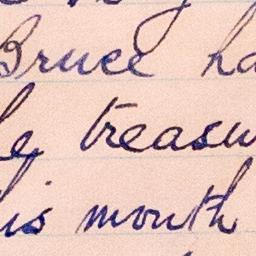 Bruce ha
he treasu
his month